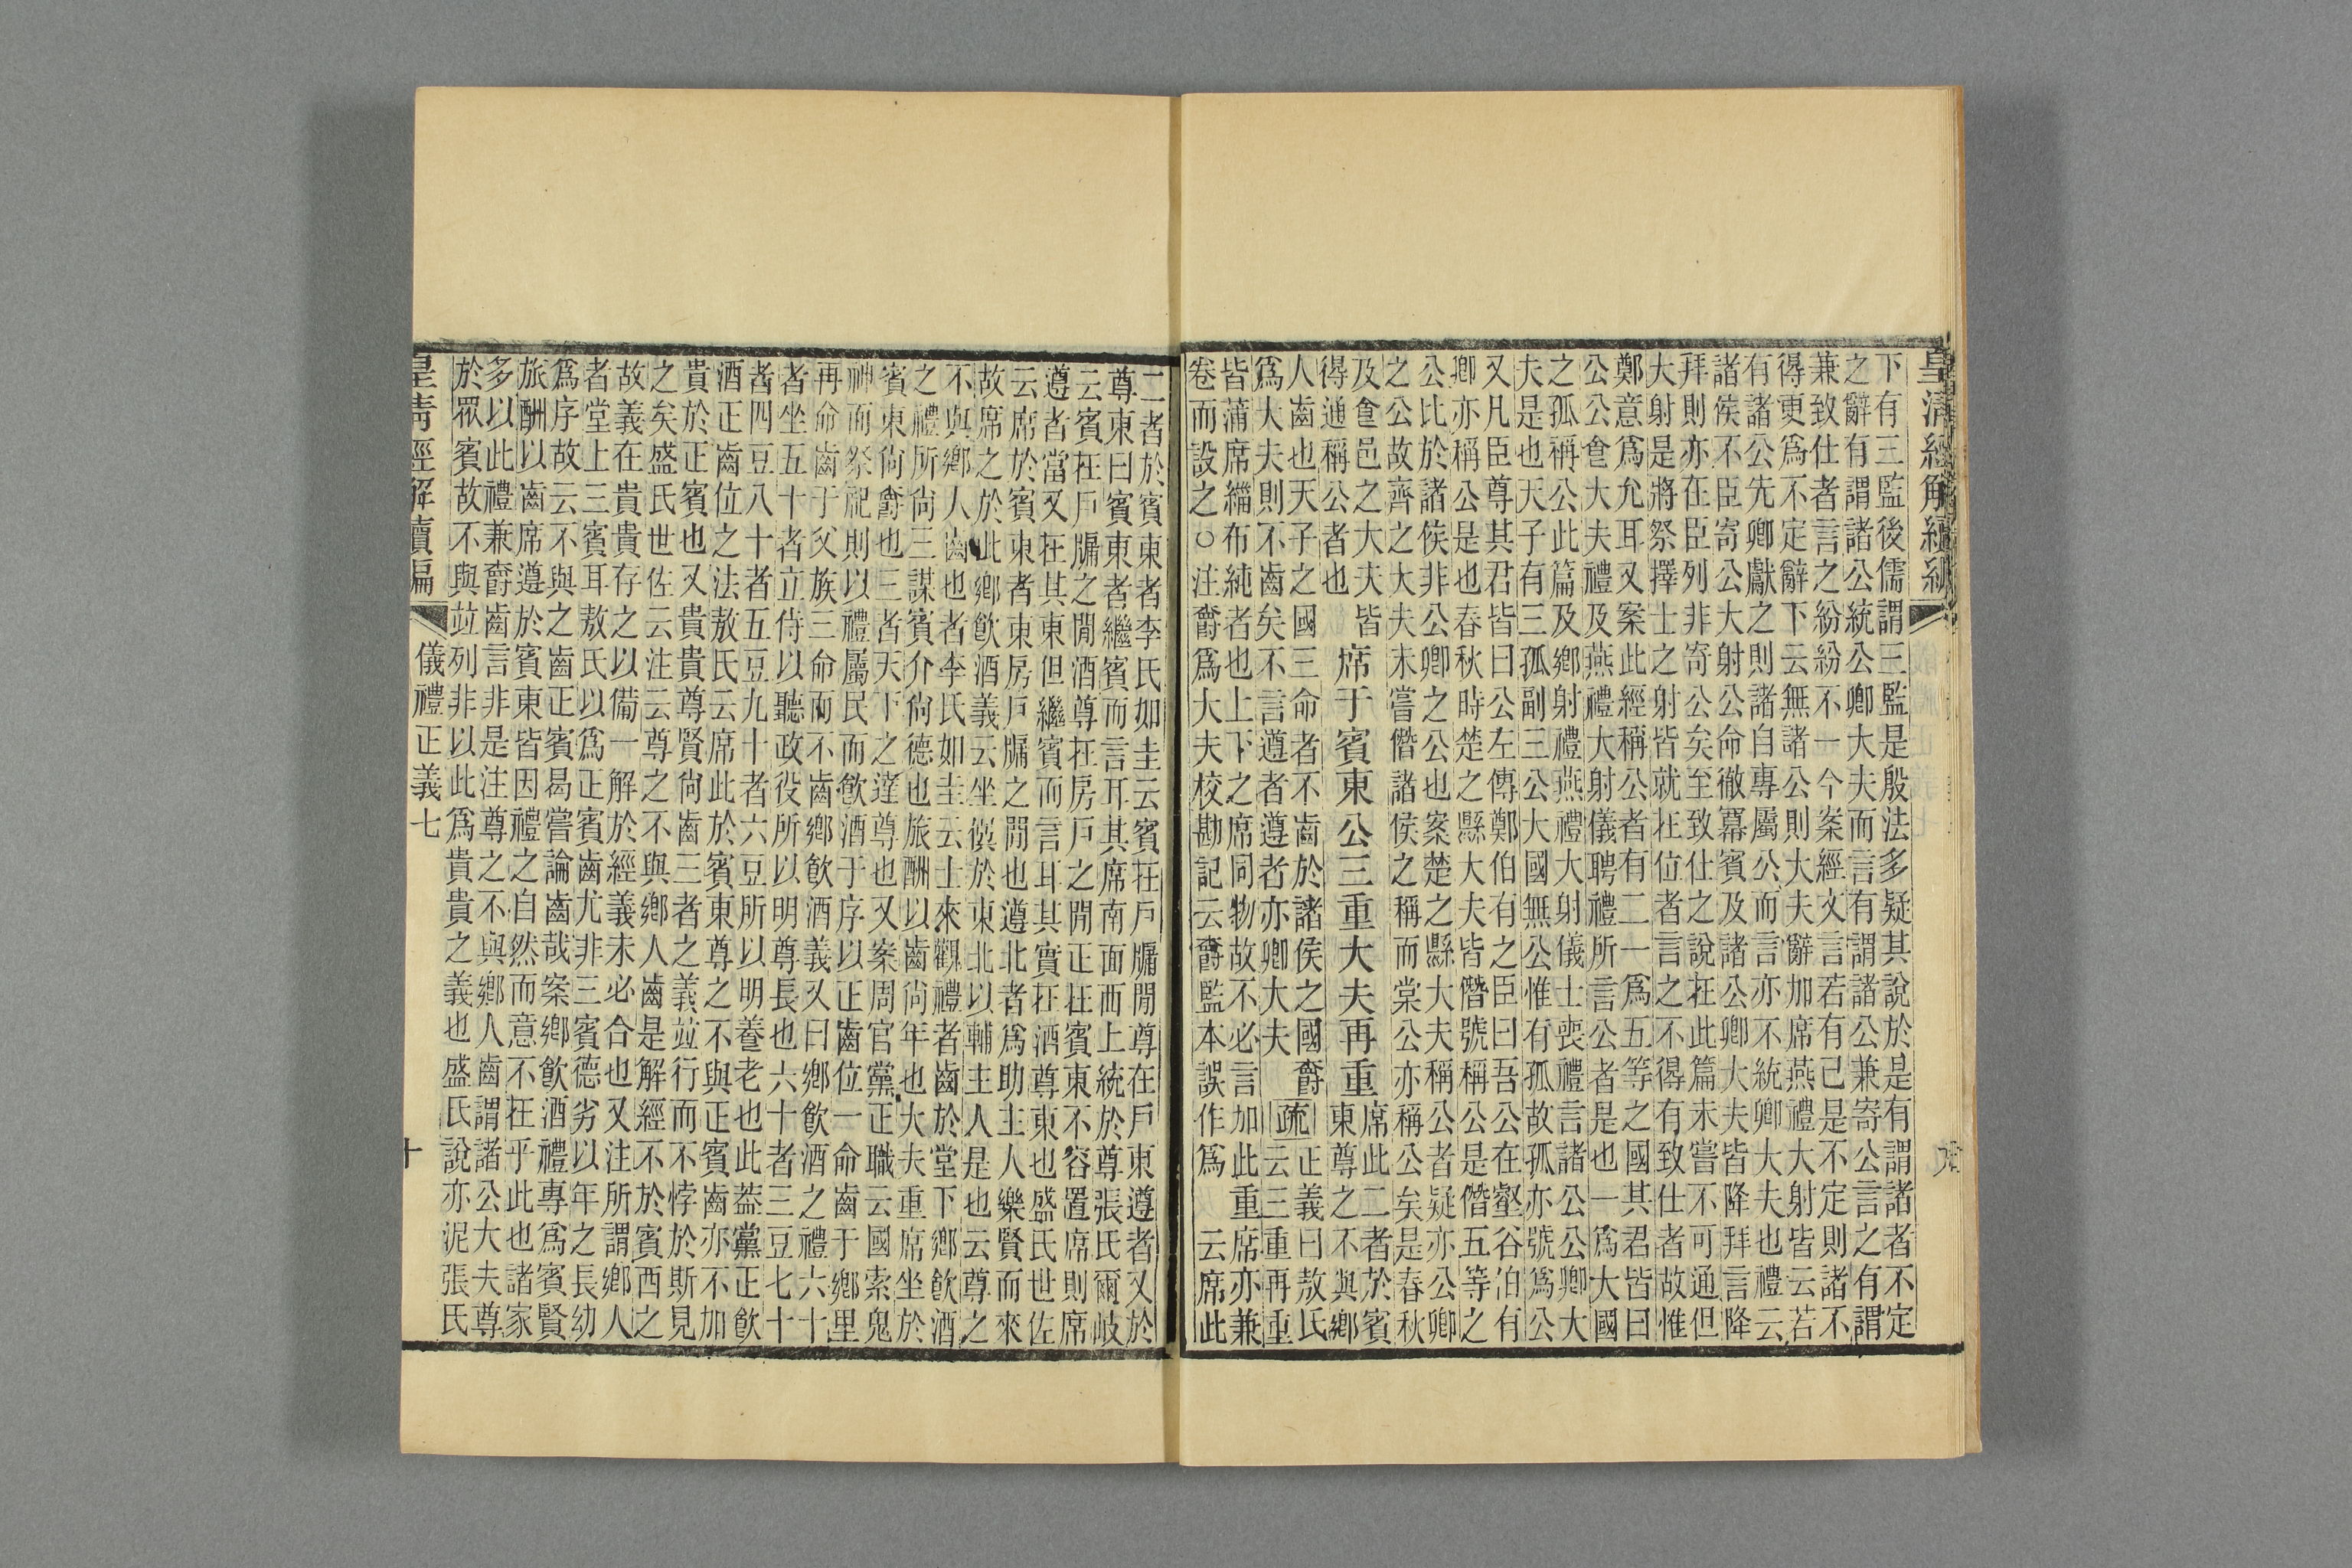 皇清經解續編
下有三監後儒謂三監是殷法多疑其說於是有謂諸者不定
之辭有謂諸公統公卿大夫而言有謂諸公兼寄公言之有謂
兼致仕者言之紛紛不一今案經文言若有己是不定則諸不
得更爲不定辭下云無諸公則大夫辭加席燕禮大射皆云若
有諸公先卿獻之則諸自專屬公而言亦不統卿大夫也禮云
諸侯不臣寄公大射公命徹冪賓及諸公卿大夫皆降拜言降
拜則亦在臣列非寄公矣至致仕之說在此篇未嘗不可通但
大射是將祭擇士之射皆就在位者言之不得有致仕者故惟
鄭意爲允耳又案此經稱公者有二一爲五等之國其君皆曰
公公食大夫禮及燕禮大射儀聘禮所言公者是也一爲大國
之孤稱公此篇及鄉射禮燕禮大射儀士喪禮言諸公公卿大
夫是也天子有三孤副三公大國無公惟有孤故孤亦號爲公
又凡臣尊其君皆曰公左傳鄭伯有之臣曰吾公在壑谷泊有
卿亦稱公是也春秋時楚之縣大夫皆僭號稱公是僭五等之
公比於諸侯非公卿之公也案楚之縣大夫稱公者疑亦公卿
之公故齊之大夫未嘗僭諸侯之稱而棠公亦稱公矣是春秋
及食邑之大夫皆
得通稱公者也
席于賓東公三重大夫再重
席此二者於賓
東尊之不與鄉
人齒也天子之國三命者不齒於諸侯之國爵
爲大夫則不齒矣不言遵者遵者亦卿大夫
疏
正義曰敖氏
云三重再重
皆蒲席緇布純者也上下之席同物故不必言加此重席亦兼
卷而設之○注爵爲大夫校勘記云爵監本誤作爲 云席此
二者於賓東者李氏如圭云賓在戶牖閒尊在戶東遵者又於
尊東曰賓東者繼賓而言耳其席南面西上統於尊張氏爾岐
云賓在戶牖之閒酒尊在房戶之閒正在賓東不容置席則席
遵者當又在其東但繼賓而言耳其實在酒尊東也盛氏世佐
云席於賓東者東房戶牖之閒也遵北者爲助主人樂賢而來
故席之於此鄉飲酒義云坐僎於東北以輔主人是也云尊之
不與鄉人齒也者李氏如圭云士來觀禮者齒於堂下鄉飲酒
之禮所尙三謀賓介尙德也旅酬以齒尙年也大夫重席坐於
賓東尙爵也三者天下之達尊也又案周官黨正職云國索鬼
神而祭祀則以禮屬民而飲酒于序以正齒位一命齒于鄉里
再命齒于父族三命而不齒鄉飲酒義又曰鄉飲酒之禮六十
者坐五十者立侍以聽政役所以明尊長也六十者三豆七十
者四豆八十者五豆九十者六豆所以明養老也此葢黨正飲
酒正齒位之法敖氏云席此於賓東尊之不與正賓齒亦不加
貴於正賓也又貴貴尊賢尙齒三者之義竝行而不悖於斯見
之矣盛氏世佐云注云尊之不與鄉人齒是解經不於賓西之
故義在貴貴存之以備一解於經義未必合也又注所謂鄉人
者堂上三賓耳敖氏以爲正賓齒尤非三賓德劣以年之長幼
爲序故云不與之齒正賓曷嘗論齒哉案鄉飲酒禮專爲賓賢
旅酬以齒席遵於賓東皆因禮之自然而意不在乎此也諸家
多以此禮兼爵齒言非是注尊之不與鄉人齒謂諸公大夫尊
於眾賓故不與竝列非以此爲貴貴之義也盛氏說亦泥張氏
皇清經解續編
儀禮正義七
十